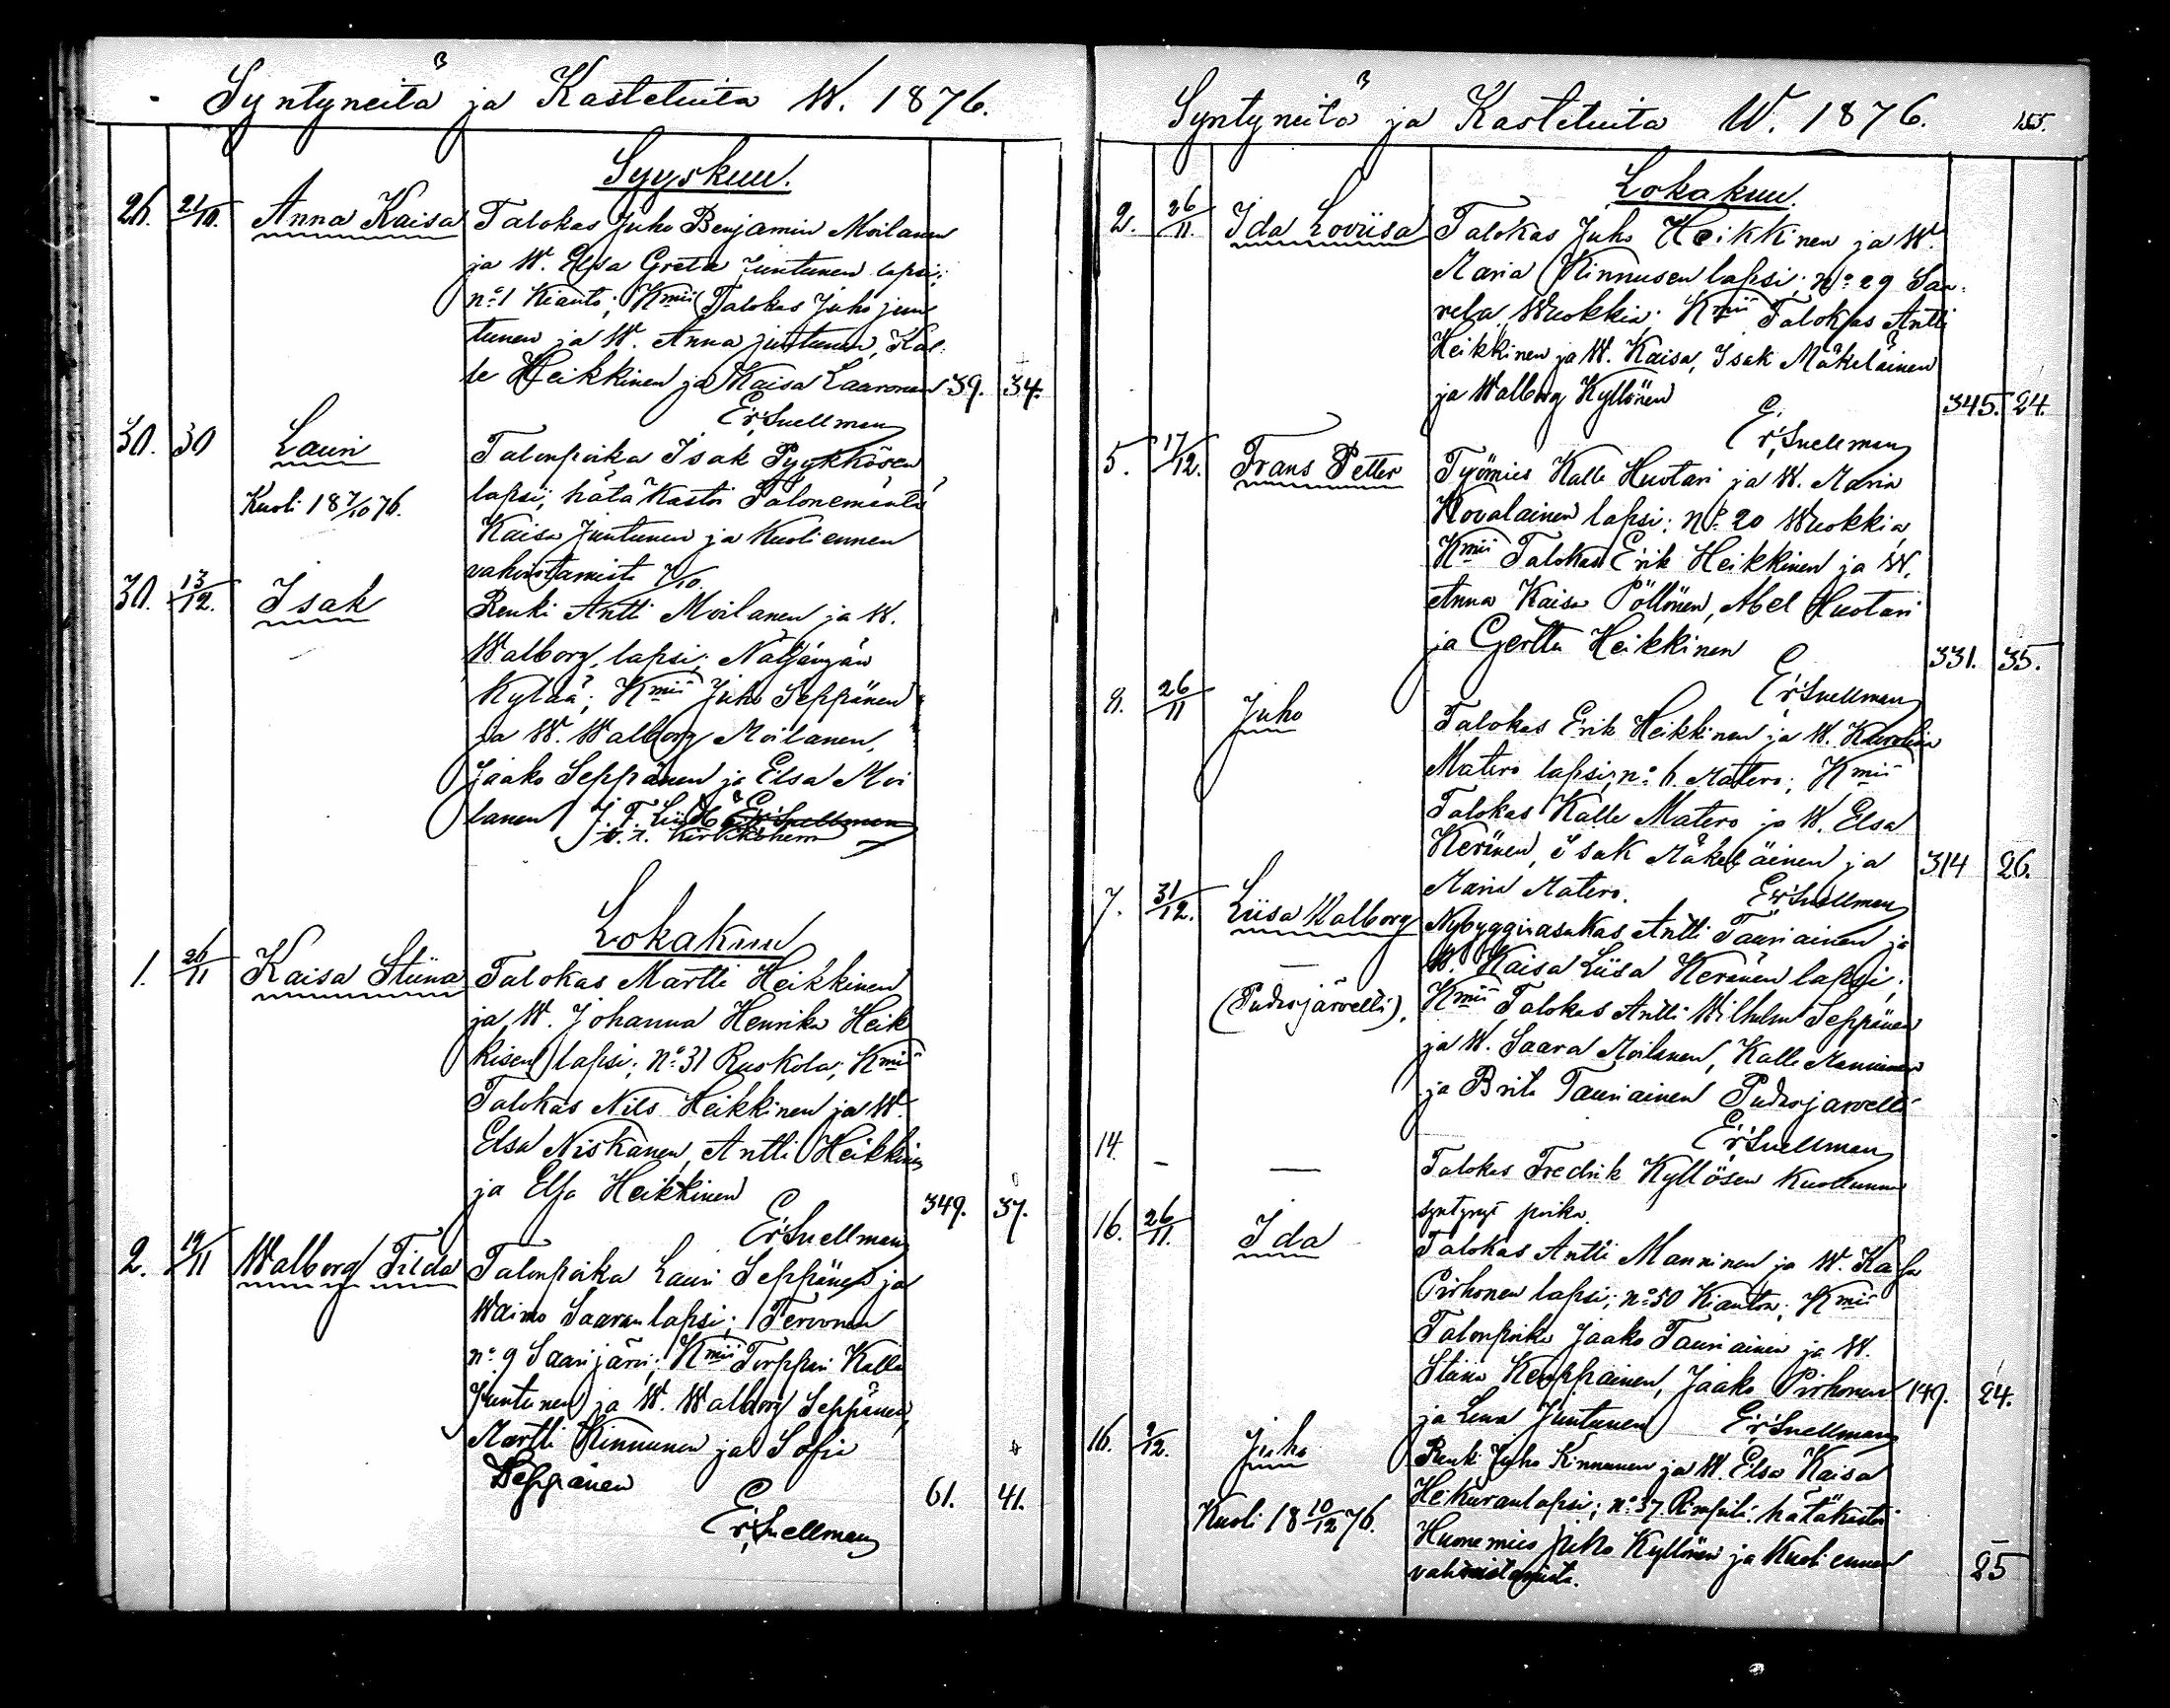 Syntyneitä ja Kastetuita W. 1876.
Syyskuu.
26. 21/10. Anna Kaisa Talokas Juho Benjamin Moilanen
ja W. Elsa Greta Juntunen lapsi;
No 1 Kianto; Kmii Talokas Juho Jun
tunen ja W. Anna Juntunen, Kal:
le Heikkinen ja Kaisa Laaronen 39. 34.
Er. Snellman
30. 30 Lauri Talonpoika Isak Pyykkösen
Kuoli 18 7/10 76. lapsi; hätä Kastoi Talonemäntä
Kaisa Juntunen ja Kuoli ennen
vahvistamista 7/10.
30. 13/12. Isak Renki Antti Moilanen ja W.
Walborg, lapsi; Näljängän
Kylää; Kmii Juho Seppänen
ja W. Walborg Moilanen,
Jaako Seppänen ja Elsa Moi
lanen J. F. Er. Snellman
Lokakuu
1. 26/11 Kaisa Stiina Talokas Martti Heikkinen
ja W. Johanna Henrika Heik
kisen lapsi; No 31 Ruokola; Kmii
Talokas Nils Heikkinen ja W.
Elsa Niskanen, Antti Heikkinen
ja Elsa Heikkinen 349. 37.
Er. Snellman
2. 19/11 Walborg Tilda Talonpoika Lauri Seppänen ja
Waimo Saaran lapsi; Tervonen
no 9 Saarijärvi; Kmii Torppari Kalle
Juntunen ja W. Walborg Seppänen,
Martti Kinnunen ja Sofia
Seppänen 61. 41.
Er. Snellman
Syntyneitä ja Kastetuita W. 1876. 155.
Lokakuu.
2. 26/11. Ida Loviisa Talokas Juho Heikkinen ja W.
Maria Kinnusen lapsi; No 29 Saa:
rela, Wuokkia; Kmii Talokas Antti
Heikkinen ja W. Kaisa, Isak Mäkeläinen
ja Walborg Kyllönen 345. 24.
Er. Snellman
5. 17/12. Frans Petter Työmies Kalle Huotari ja W. Maria
Kovalainen lapsi; No 20 Wuokkia,
Kmii Talokas Erik Heikkinen ja W.
Anna Kaisa Pöllönen, Abel Huotari
ja Gertta Heikkinen 331. 35.
Er. Snellman
8. 26/11 Juho Talokas Erik Heikkinen ja W. Karolina
Matero lapsi; no 6. Matero; Kmii
Talokas Kalle Matero ja W. Elsa
Keränen, Isak Mäkeläinen ja 314 26.
Maria Matero. Er. Snellman
7. 31/12. Liisa Walborg Nybyggisasukas Antti Tauriainen ja
W. Kaisa Liisa Keränen lapsi;
(Pudasjärvellä). Kmii Talokas Antti Wilhelm Seppänen
ja W. Saara Moilanen, Kalle Manninen
ja Brita Tauriainen Pudasjärvellä
Er. Snellman
14. – — Talokas Fredrik Kyllösen Kuolleena
syntynyt poika.
16. 26/11. Ida Talokas Antti Manninen ja W. Kaisa
Pirhonen lapsi; no 50 Kianton; Kmii
Talonpoika Jaako Tauriainen ja W.
Stiina Keppainen, Jaako Pirhonen 149. 24.
ja Lena Juntunen Er. Snellman
16. 9/12. Juho Renki Juho Kinnunen ja W. Elsa Kaisa
Kuoli 18 10/12 76. lapsi; no 37. hätäkastoi
Huonemies Juho Kyllönen ja Kuoli ennen
vahvistamista. 25